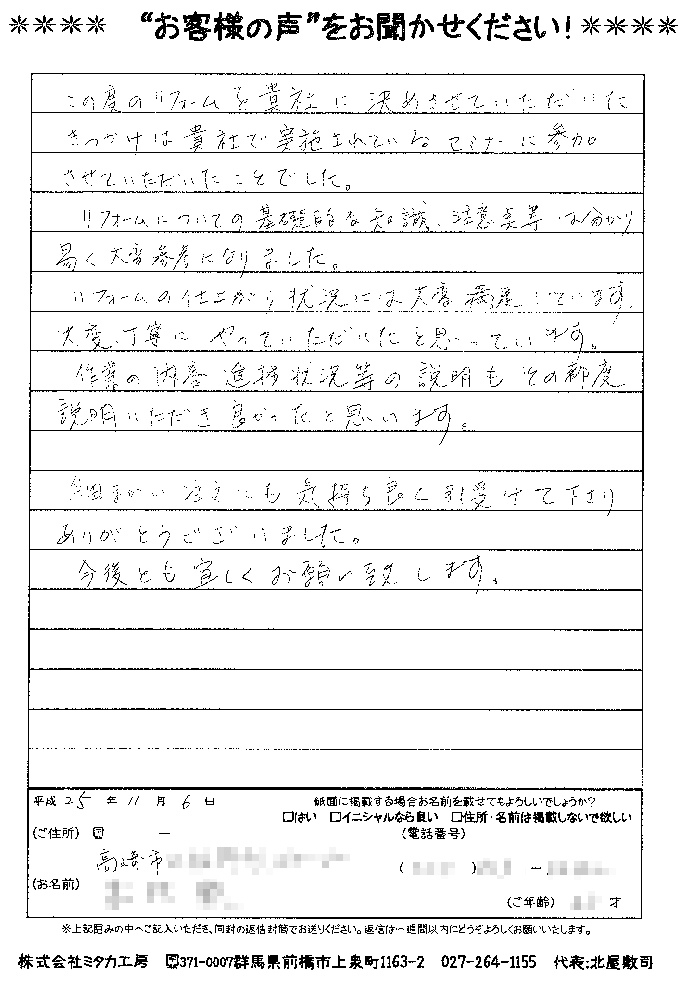 ＊＊＊＊ “お客様の声”をお聞かせください！＊＊＊＊
この度のリフォームを貴社に決めさせていただいた
きっかけは貴社で実施されているセミナーに参加
させていただいたことでした。
リフォームについての基礎的な知識、注意点等は分かり
易く大変参考になりました。
リフォームの仕上がり状況には大変満足しています。
大変、丁寧にやっていただいたと思っています。
作業の内容進捗状況等の説明もその都度
説明いただき良かったと思います。
細まかい注文にも気持ち良く引受けて下さり
ありがとうございました。
今後とも宜しくお願い致します。
平成 25 年 11 月 6 日
紙面に掲載する場合お名前を載せてもよろしいでしょうか？
□はい □イニシャルなら良い □住所・名前は掲載しないで欲しい
(ご住所) 〒 ―
(電話番号)
高崎市
( ) ―
(お名前)
(ご年齢) 才
※上記囲みの中へご記入いただき、同封の返信封筒でお送りください。返信は一週間以内にどうぞよろしくお願いいたします。
株式会社ミタカ工房 〒371-0007群馬県前橋市上泉町1163-2 027-264-1155 代表:北屋敷司